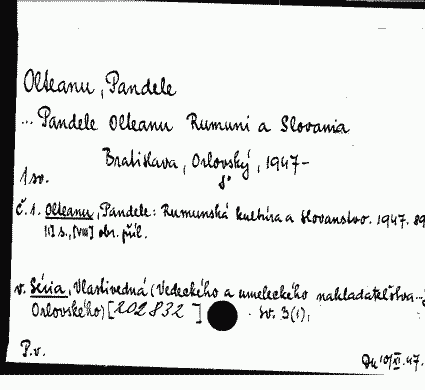 Olteanu, Pandele
... Pandele Olteanu Rumuni a Slovania
Bratislava, Orlovský, 1947-
8°
1 sv.
č. 1. Olteanu, Pandele: Rumunská kultúra a slovanstvo. 1947. 89
[1] s., [VIII] obr. príl.
v. Séria, Vlastivedná (Vedeckého a umeleckého nakladateľstva
Orlovského) [202832] sv. 3(1),
P.v.
10/XI.47.